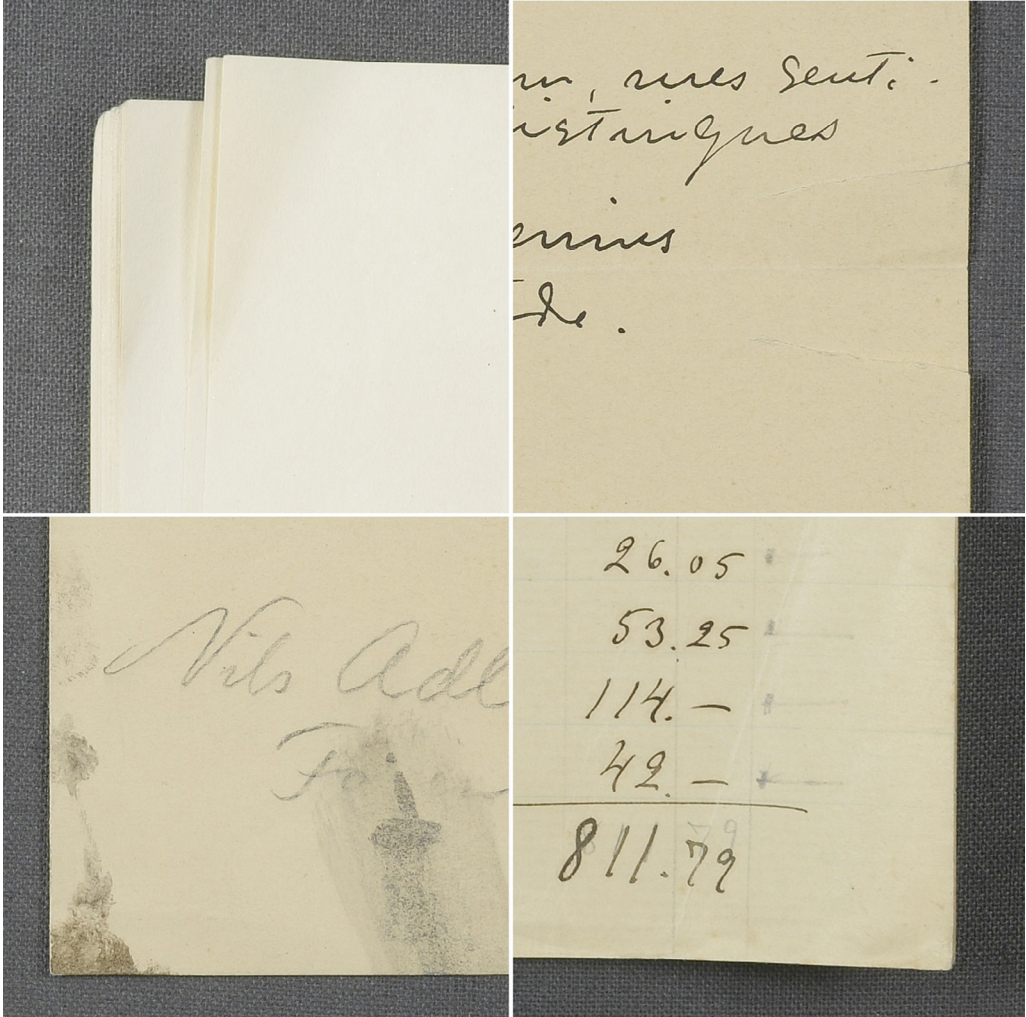 , mes senti-
istingues
enius
de.
Nils Adl
26.05
53.25
114.—
42.—
811.79